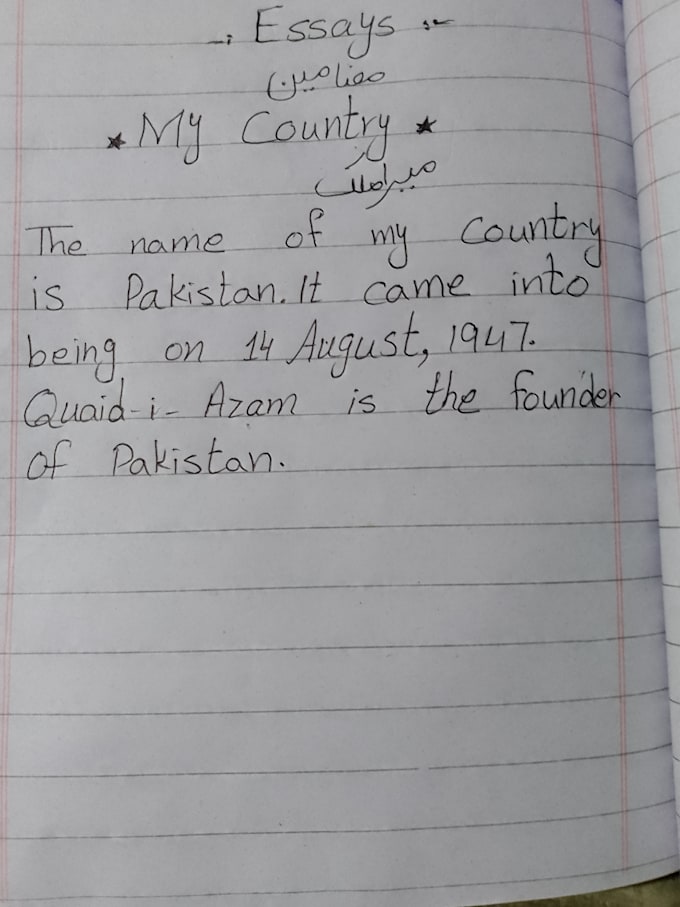 -: Essays :-
مضامین
★ My Country ★
میرا ملک
The name of my Country
is Pakistan. It came into
being on 14 August, 1947.
Quaid-i-Azam is the founder
of Pakistan.